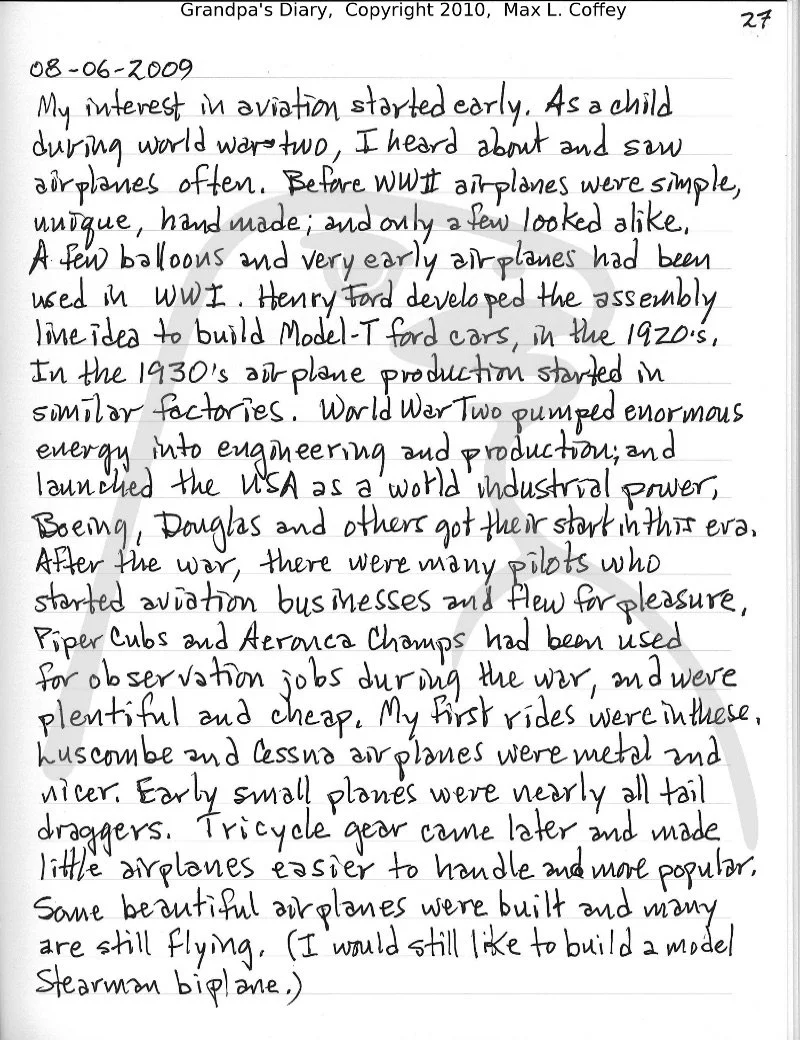 Grandpa's Diary, Copyright 2010, Max L. Coffey
27
08-06-2009
My interest in aviation started early. As a child
during world war two, I heard about and saw
airplanes often. Before WWII airplanes were simple,
unique, hand made; and only a few looked alike.
A few balloons and very early airplanes had been
used in WWI. Henry Ford developed the assembly
line idea to build Model-T ford cars, in the 1920's.
In the 1930's airplane production started in
similar factories. World War Two pumped enormous
energy into engineering and production; and
launched the USA as a world industrial power,
Boeing, Douglas and others got their start in this era.
After the war, there were many pilots who
started aviation businesses and flew for pleasure,
Piper Cubs and Aeronca Champs had been used
for observation jobs during the war, and were
plentiful and cheap. My first rides were in these.
Luscombe and Cessna airplanes were metal and
nicer. Early small planes were nearly all tail
draggers. Tricycle gear came later and made
little airplanes easier to handle and more popular.
Some beautiful airplanes were built and many
are still flying. (I would still like to build a model
Stearman biplane.)